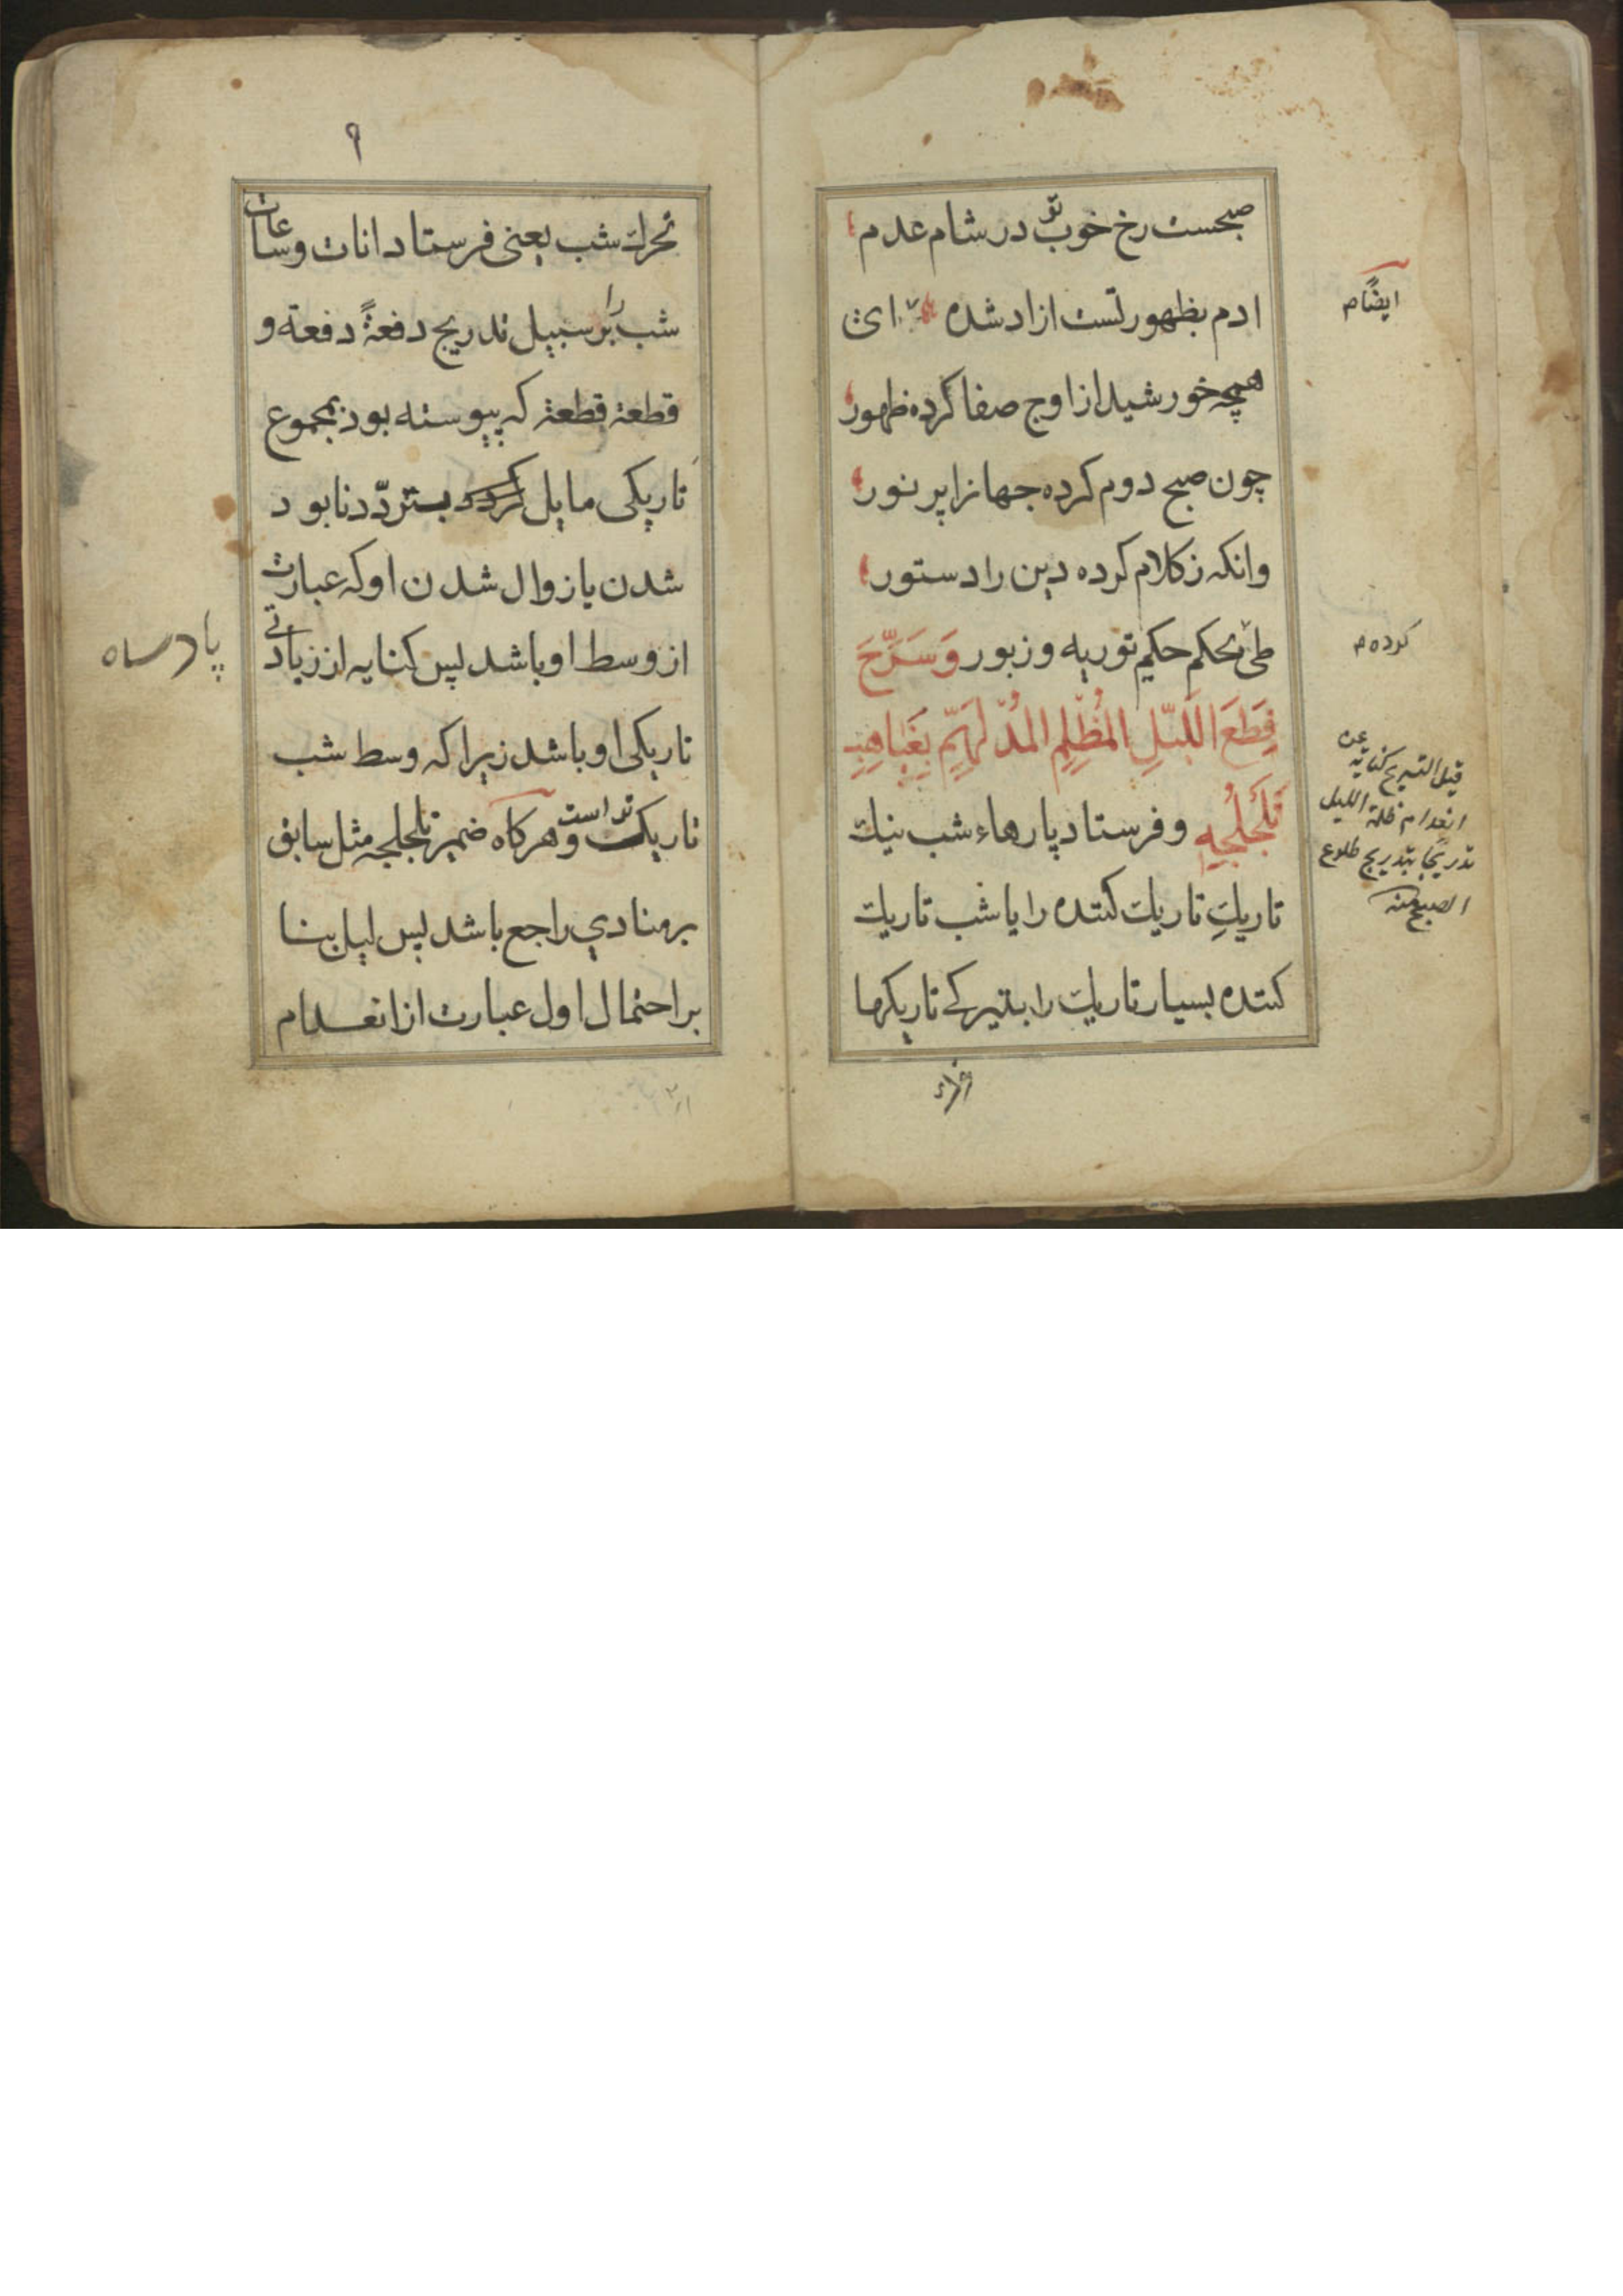 صبحست رخ خوب تو در شام عدم
ادم بظهور تست ازاد شده
همچه خورشید از اوج صفا کرده ظهور
چون صبح دوم کرده جهانرا پر نور
وانکه ز کلام کرده دین را دستور
طی بحکم حکیم توریه و زبور وَسَرَّحَ
قِطَعَ اللَّیْلِ المُظْلِمِ المُدْلَهِمِّ بِغَیاهِبِ
تَلَجْلُجِهِ و فرستاد پارهاء شب نیك
تاریكِ تاریك کننده را یا شب تاریك
کننده بسیار تاریك را بتیرکے تاریکیها
ایضًا م
کرده م
قیل التسریح کنایة عن
انعدام ظلمة اللیل
تدریجًا بتدریج طلوع
الصبح منه
۹
تحرك شب یعنی فرستاد انات وساعات
شب را بر سبیل تدریج دفعةً دفعة و
قطعة قطعة که پیوسته بود بمجموع
تاریکی مایل کرده بتردّد نابود
شدن یا زوال شدن او که عبارت
از وسط او باشد پس کنایه از زیادتی
تاریکی او باشد زیرا که وسط شب
تاریک تر است و هرکاه ضمیر تلجلجه مثل سابق
بر منادي راجع باشد پس لیل بنا
بر احتمال اول عبارت از انعدام
پادساه